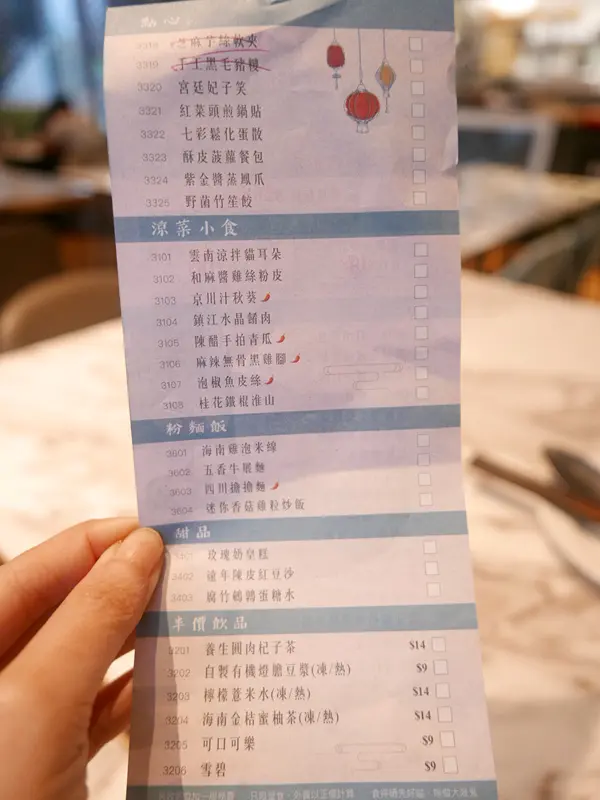 點心
3318 芝麻芋蓉軟夾
3319 手工黑毛豬糭
3320 宮廷妃子笑
3321 紅菜頭煎鍋貼
3322 七彩鬆化蛋散
3323 酥皮菠蘿餐包
3324 紫金醬蒸鳳爪
3325 野菌竹笙餃
涼菜小食
3101 雲南涼拌貓耳朵
3102 和麻醬雞絲粉皮
3103 京川汁秋葵
3104 鎮江水晶餚肉
3105 陳醋手拍青瓜
3106 麻辣無骨黑雞腳
3107 泡椒魚皮絲
3108 桂花鐵棍淮山
粉麵飯
3601 海南雞泡米線
3602 五香牛𦟌麵
3603 四川擔擔麵
3604 迷你香菇雞粒炒飯
甜品
3401 玫瑰奶皇糕
3402 遠年陳皮紅豆沙
3403 腐竹鵪鶉蛋糖水
半價飲品
3201 養生圓肉杞子茶 $14
3202 自製有機燈膽豆漿(凍/熱) $9
3203 檸檬薏米水(凍/熱) $14
3204 海南金桔蜜柚茶(凍/熱) $14
3205 可口可樂 $9
3206 雪碧 $9